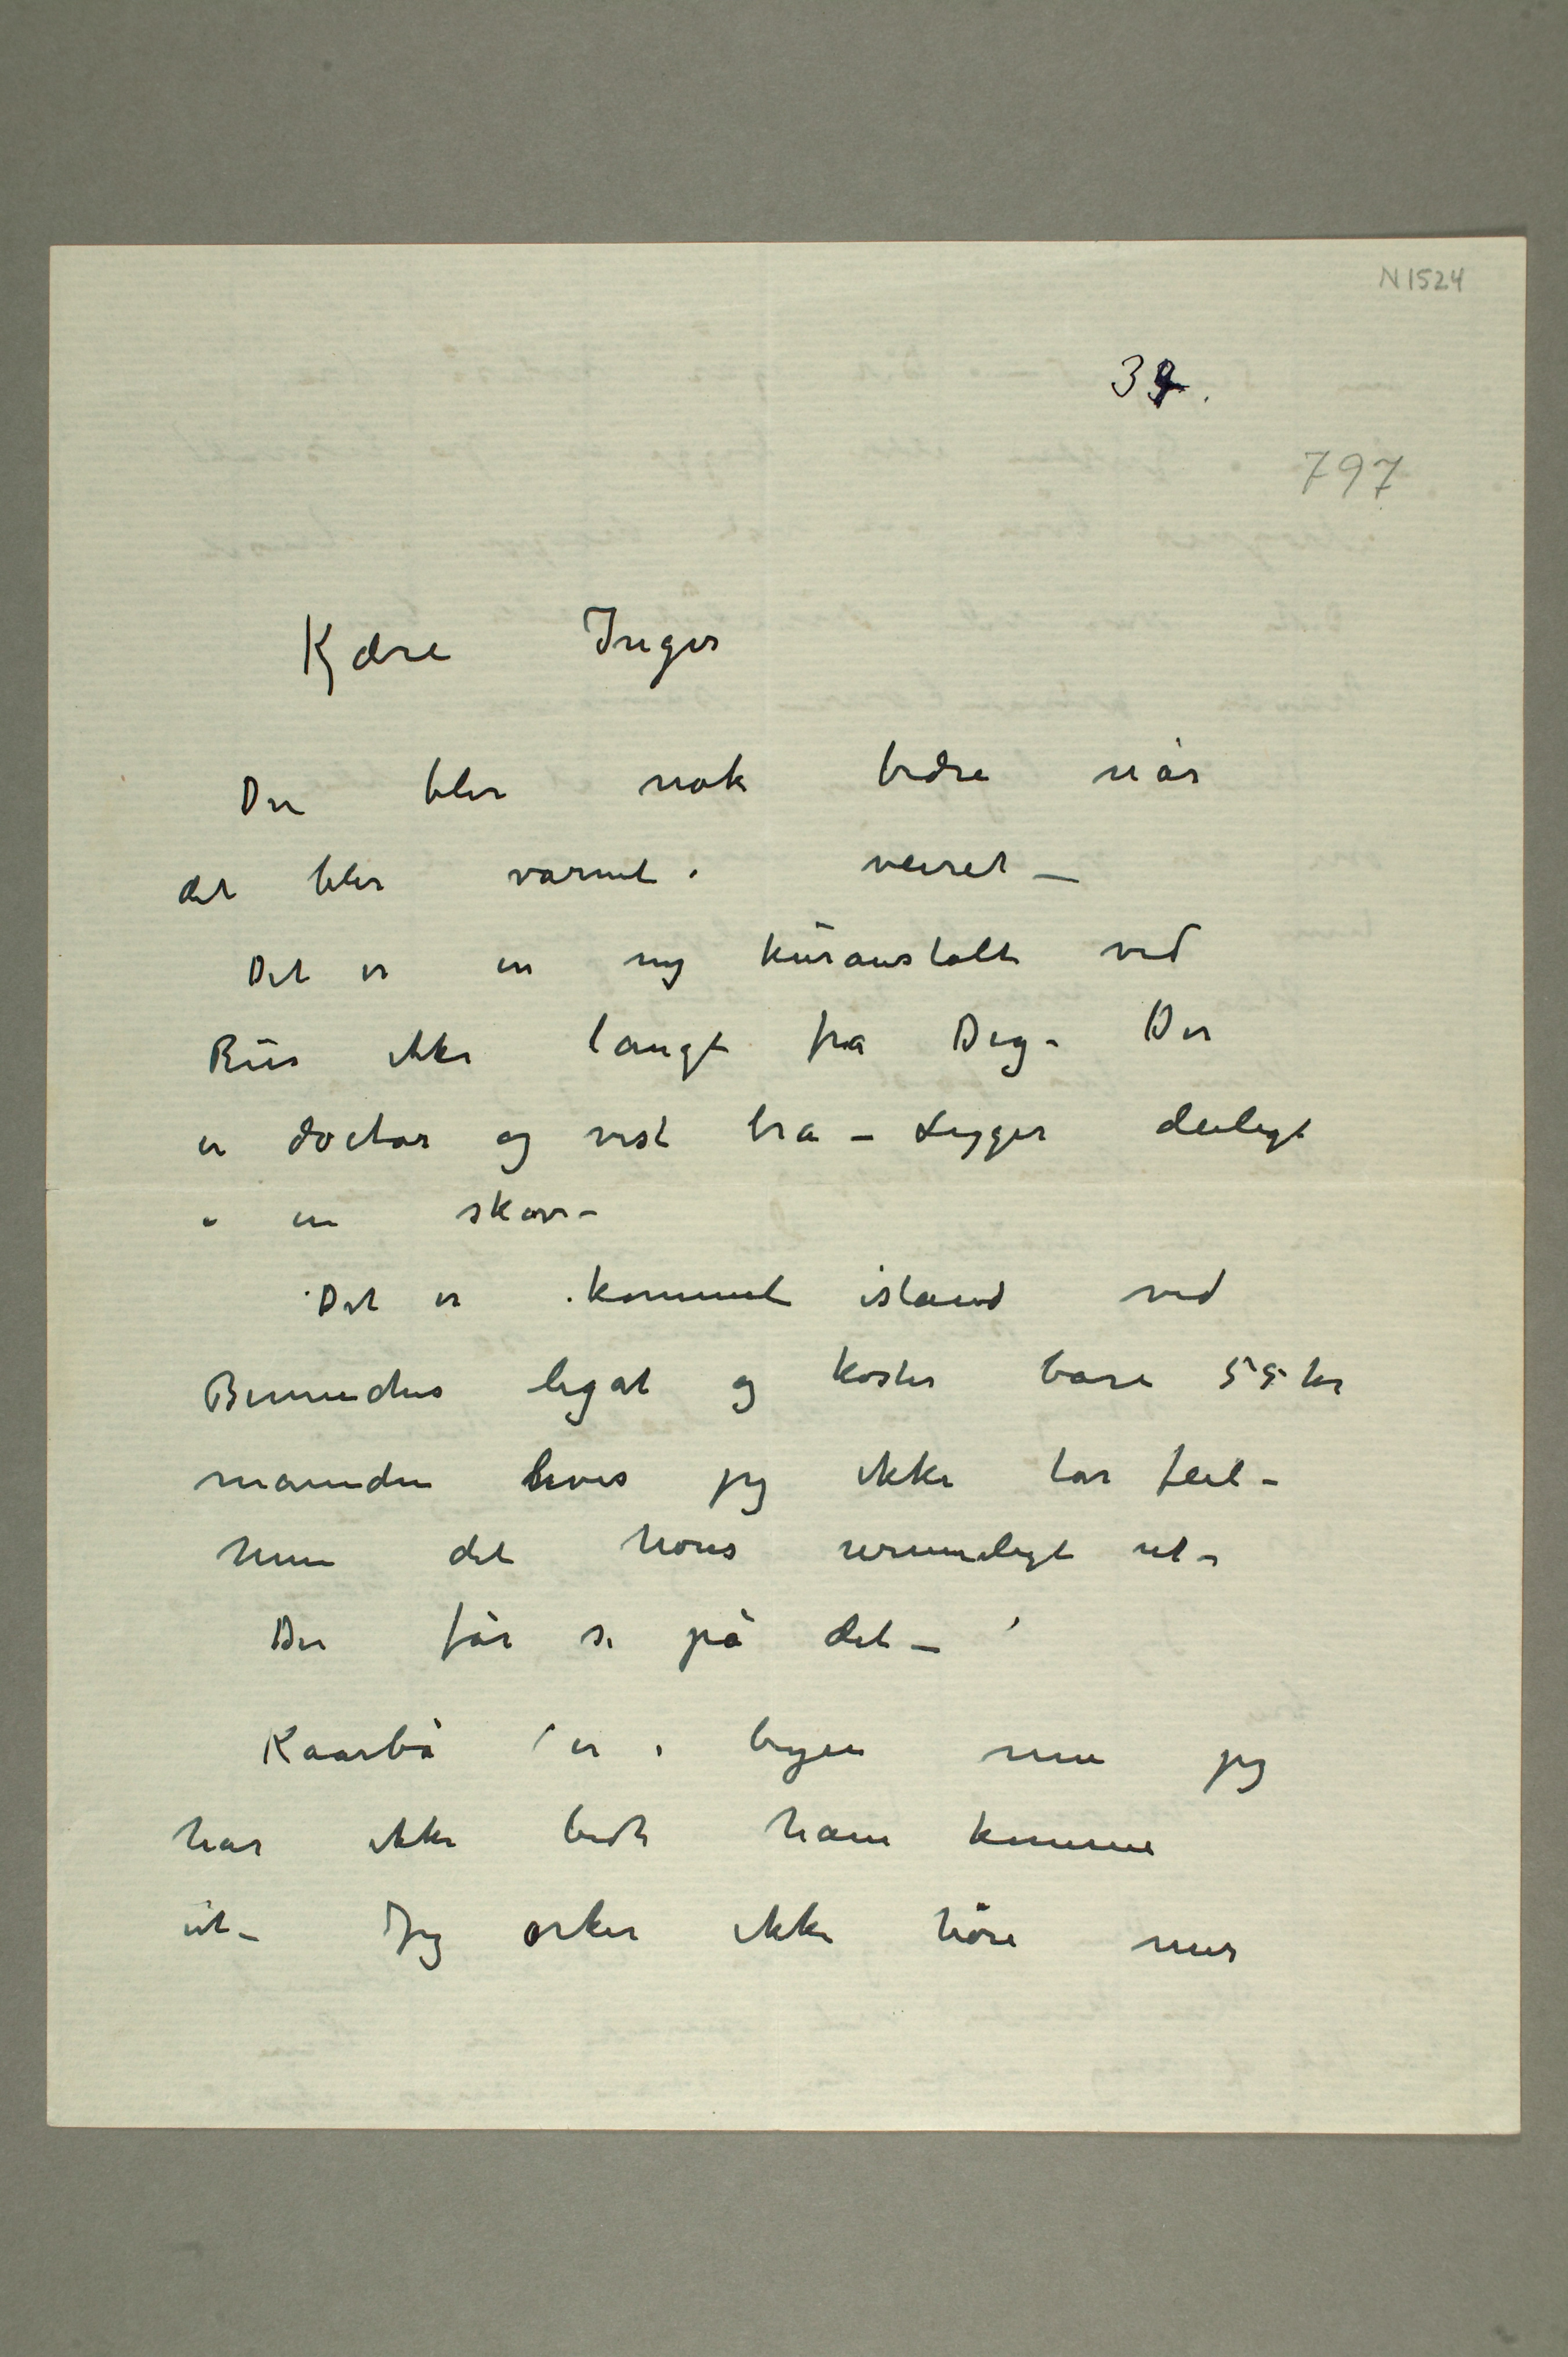 N 1524
39.
797
Kjære Inger
Du blir nok bedre når
det blir varmt i veiret –
Det er en ny kuranstalt ved
Riis ikke langt fra Dig – Der
er doctor og vist bra – Ligger deiligt
i en skov –
Det er kommet istand ved
legat og koster bare 55 kr
måneden hvis jeg ikke tar feil –
men det høres urimeligt ut –
Du får se på det –
Kaarbø er i byen men jeg
har ikke bedt ham komme
ut – Jeg orker ikke høre mer